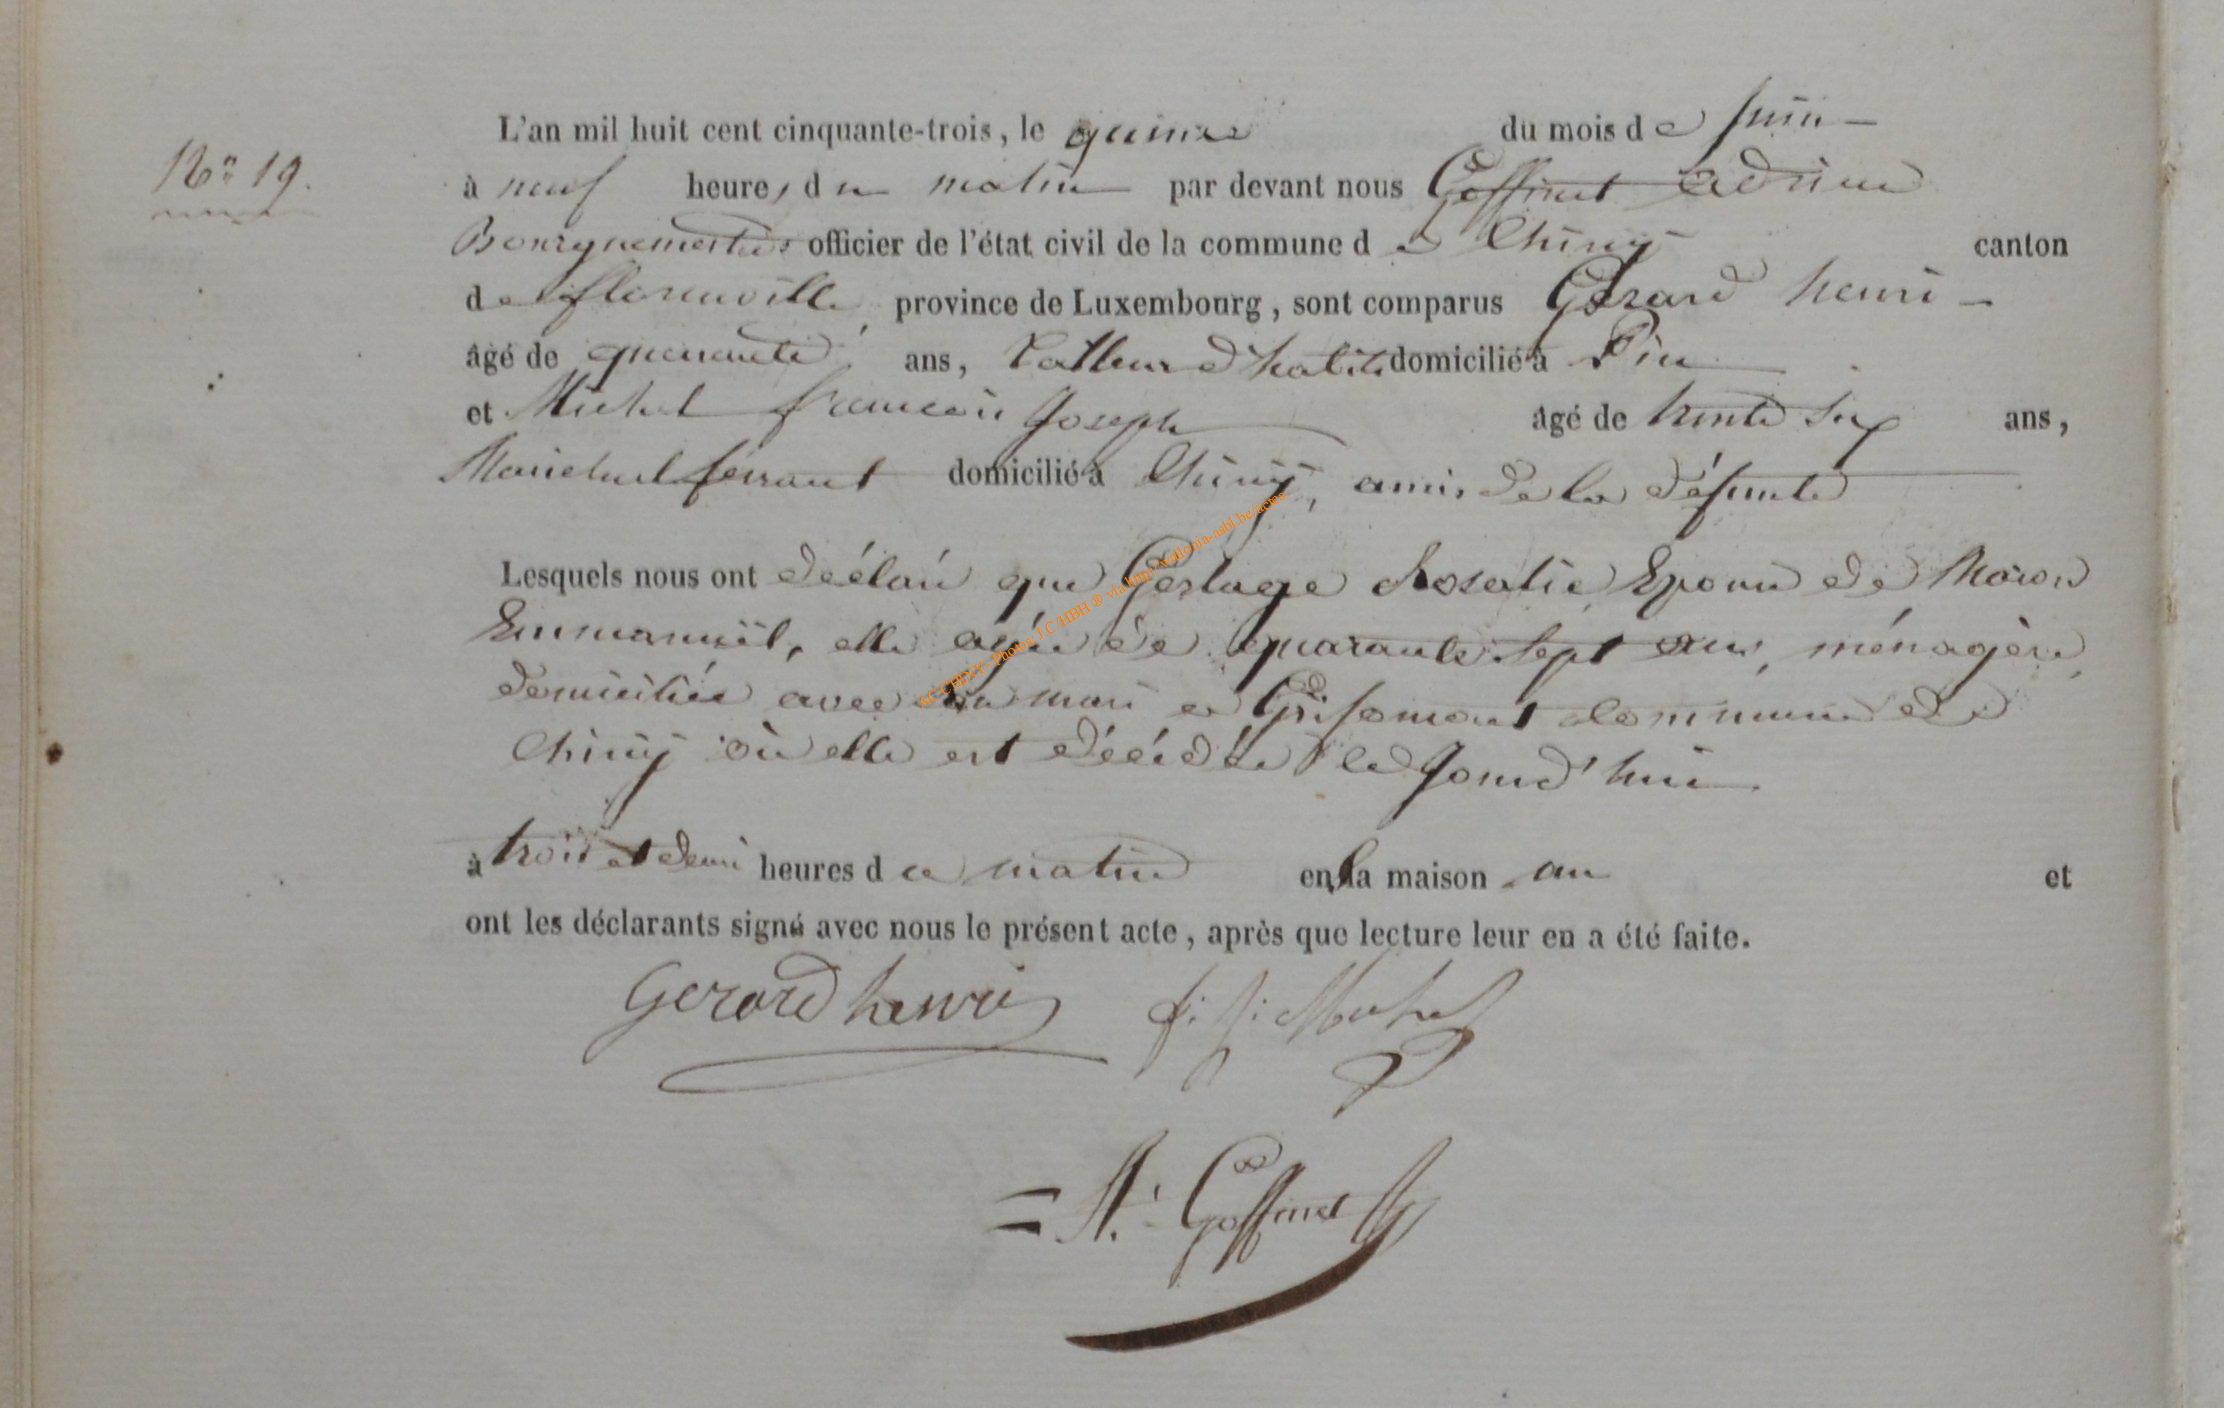 L'an mil huit cent cinquante-trois, le quinze du mois de Juin
N° 19.
à neuf heures du matin par devant nous Goffinet Adrien
Bourguemestre officier de l'état civil de la commune de Chiny canton
de florenville, province de Luxembourg, sont comparus Gérard henri
âgé de quarante ans, tailleur d'habits domicilié à Pin
et Michel françois Joseph âgé de trente six ans,
Marechal ferrant domicilié à Chiny, amis de la défunte
Lesquels nous ont déclaré que Gerlage Rosalie Epouse de
Emmanuël, elle agée de quarante sept ans, ménagère,
domiciliée avec son mari a commune de
Chiny où elle est décédée ce Jourd'hui
à trois et demi heures du matin en sa maison au et
ont les déclarants signé avec nous le présent acte, après que lecture leur en a été faite.
Gerard henri f: j: Michel
= A. Goffinet